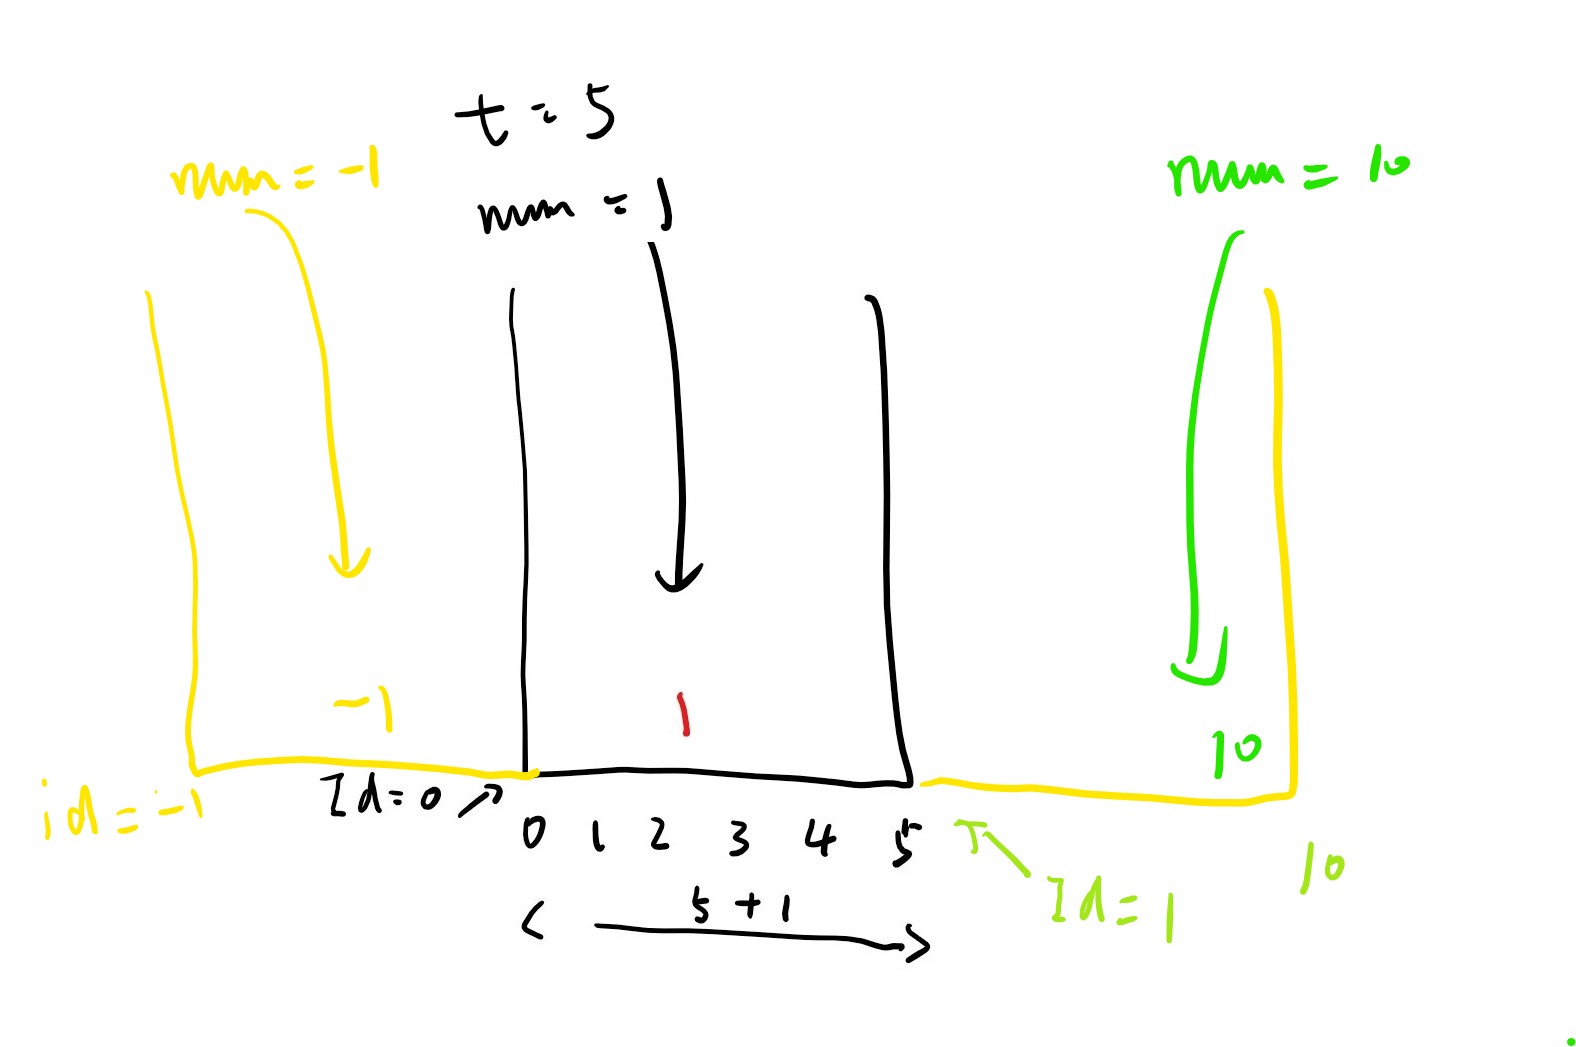 t = 5
num = -1
num = 1
num = 10
-1
1
10
id = -1
Id = 0
0 1 2 3 4 5
10
Id = 1
5 + 1